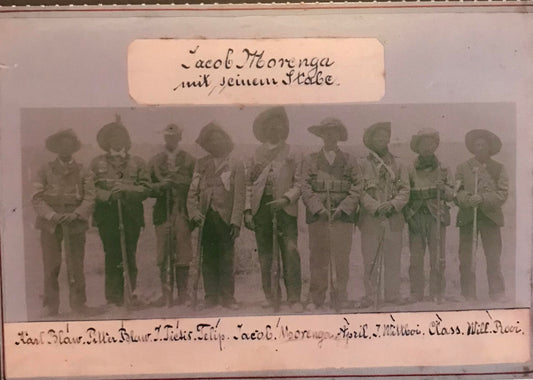 Jacob Morenga
mit seinem Stabe.
Karl Bläw. Petter Bläw. J. Pieter. Telip. Jacob Morenga. April. J. Wittboi. Class. Will. Rooi.